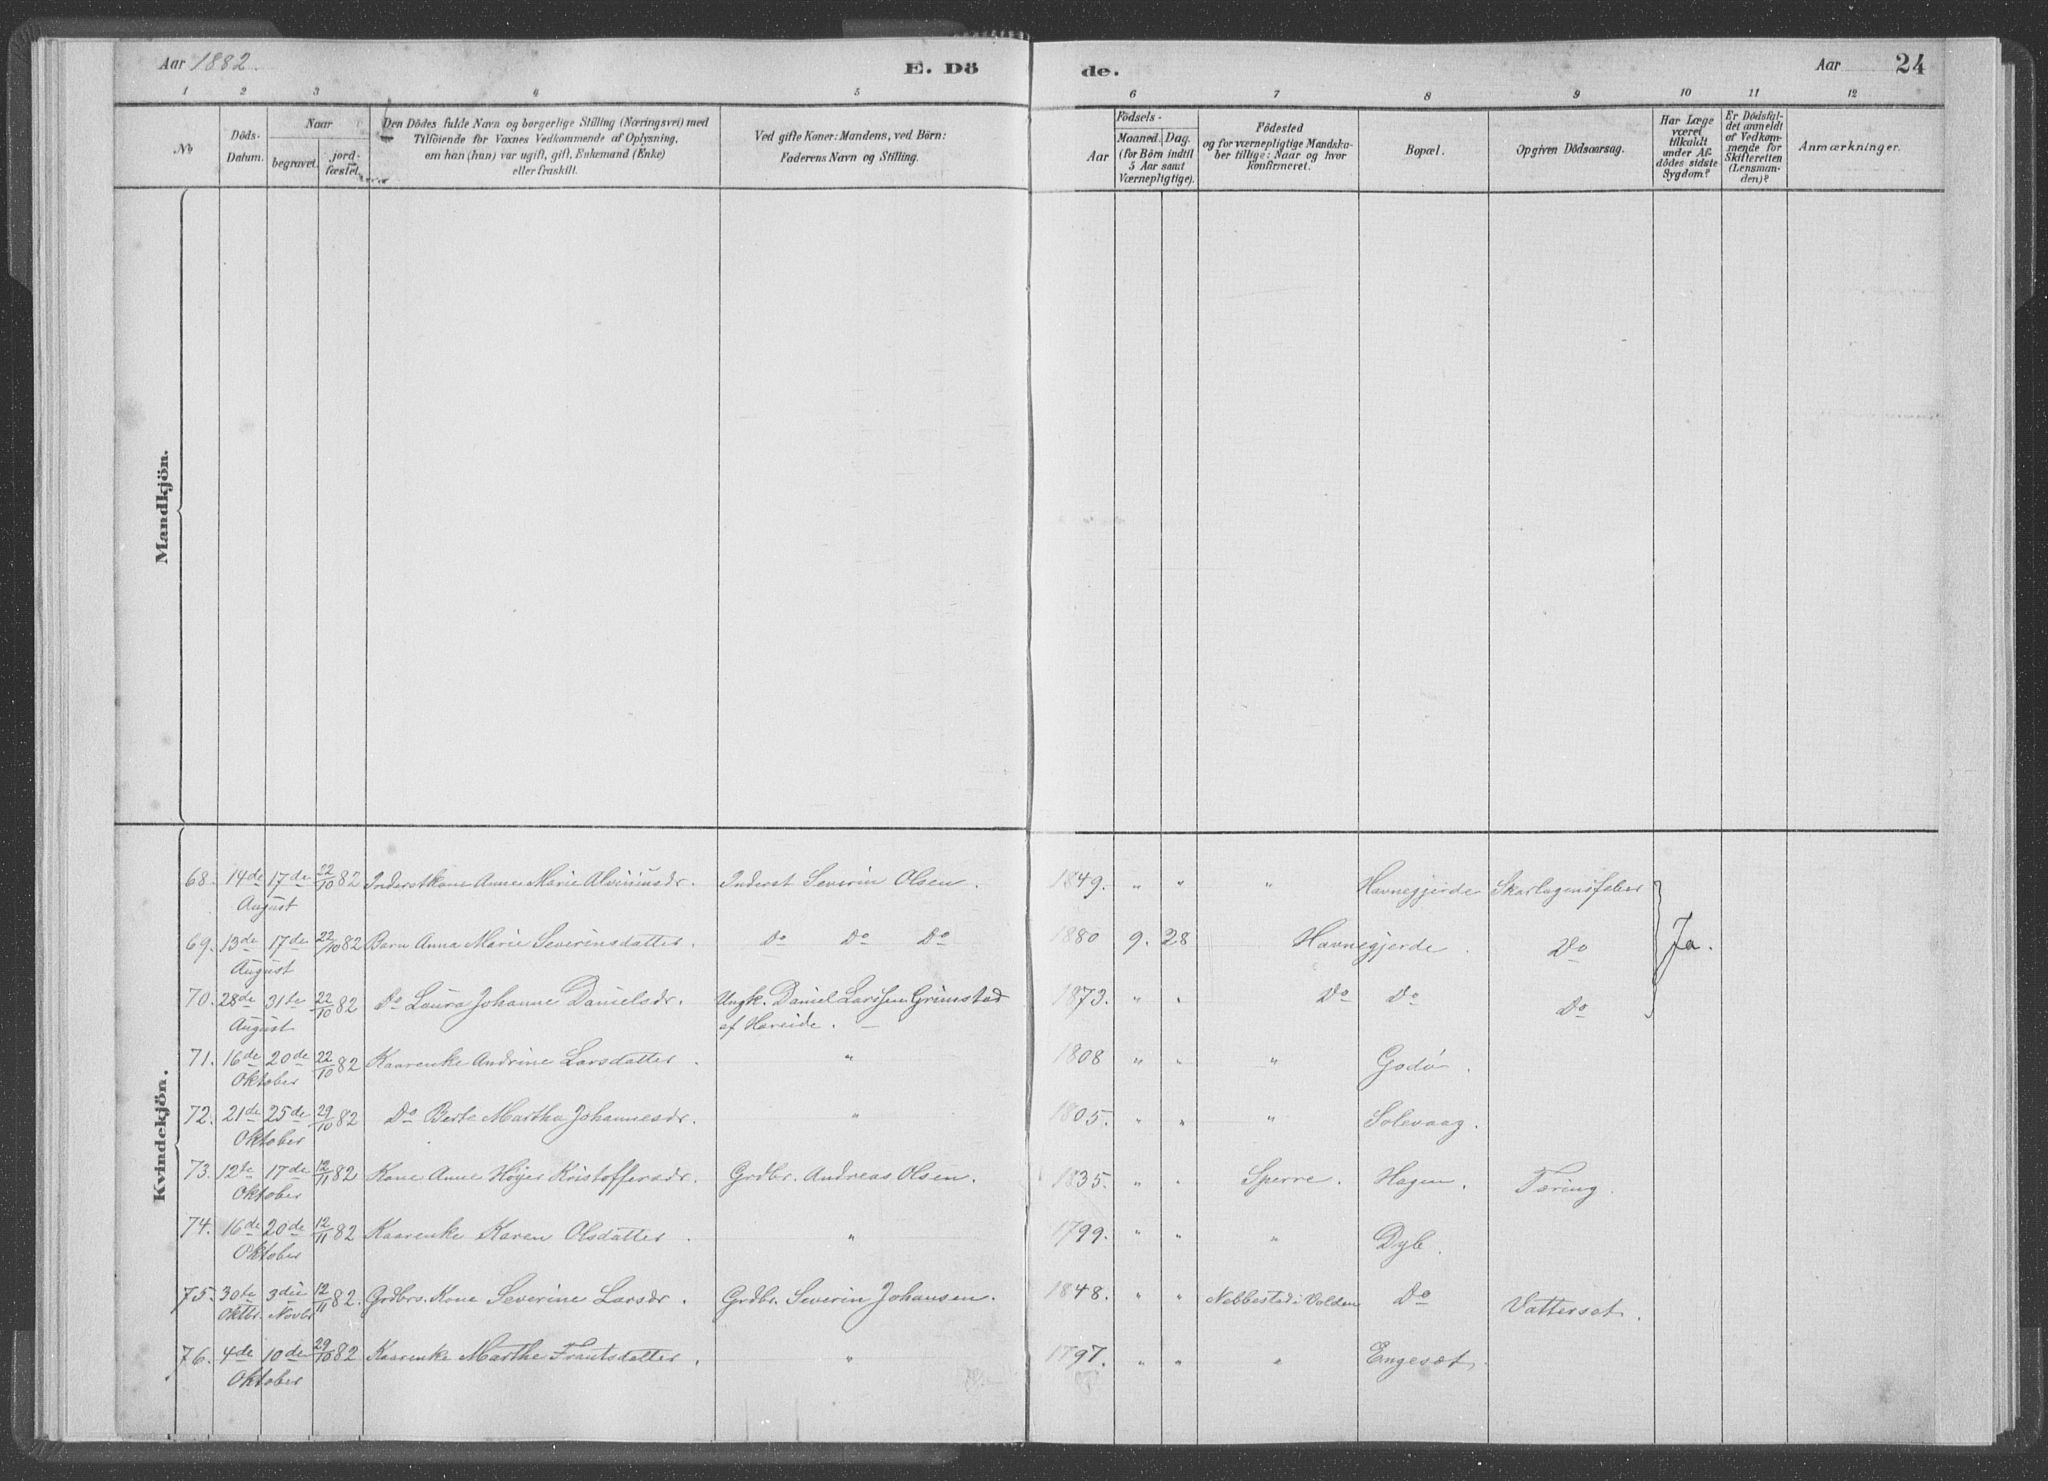 Aar 1882. E. Dö
de. Aar 24
1 2 3 4 5
6 7 8 9 10 11 12
No
Döds-
Datum.
Naar
begravet.
jord-
fæstet.
Den Dödes fulde Navn og borgerlige Stilling (Næringsvei) med
Tilföiende for Voxnes Vedkommende af Oplysning,
om han (hun) var ugift, gift, Enkemand (Enke)
eller fraskilt.
Ved gifte Koner: Mandens, ved Börn:
Faderens Navn og Stilling.
Födsels-
Aar
Maaned. Dag.
(for Börn indtil
5 Aar samt
Værnepligtige).
Födested
og for værnepligtige Mandska-
ber tillige: Naar og hvor
konfirmeret.
Bopæl.
Opgiven Dödsaarsag.
Har Læge
været
tilkaldt
under Af-
dödes sidste
Sygdom?
Er Dödsfal-
det anmeldt
af Vedkom-
mende for
Skifteretten
(Lensman-
den)?
Anmærkninger.
Mandkjön.
Kvindekjön.
68. 14de 17de 22/10 82 Inderstkone Anne Marie Alviniusdr. Inderst Severin Olsen. 1849. " " " Havnegjerde Skarlagensfeber
August
69. 13de 17de 22/10 82 Barn Anna Marie Severinsdatter. Do Do Do 1880 9. 28 Havnegjerde. Do Ja.
August
70. 28de 31te 22/10 82 Do Laura Johanne Danielsdr. Ungk. Daniel Larssen Grimstad 1873. " " Do Do Do
August af Hareide. —
71. 16de 20de 22/10 82 Kaarenke Andrine Larsdatter. " 1808 " " " Godø.
Oktober
72. 21de 25de 29/10 82 Do Berte Martha Johannesdr. " 1805. " " " Solevaag.
Oktober
73. 12te 17de 12/11 82 Kone Anne Høyer Kristoffersdr. Grdbr. Andreas Olsen. 1835. " " Sperre. Hagen. Tæring.
Oktober
74. 16de 20de 12/11 82 Kaarenke Karen Olsdatter. " 1799. " " " Dyb.
Oktober
75. 30te 3die 12/11 82. Grdbrs. Kone Severine Larsdr. Grdbr. Severin Johansen. 1848. " " Nebbestad i Volden Do Vattersot.
Oktbr. Novbr
76. 4de 10de 29/10 82 Kaarenke Marthe Frantsdatter. " 1797. " " " Engesæt.
Oktober